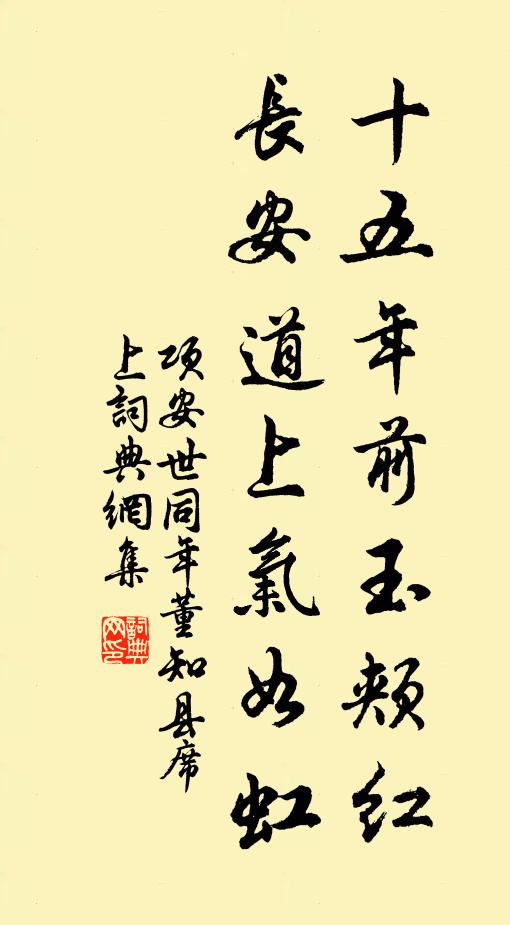 十五年前玉頰紅
長安道上氣如虹
項安世同年董知县席
上詞典網集
詞典网印